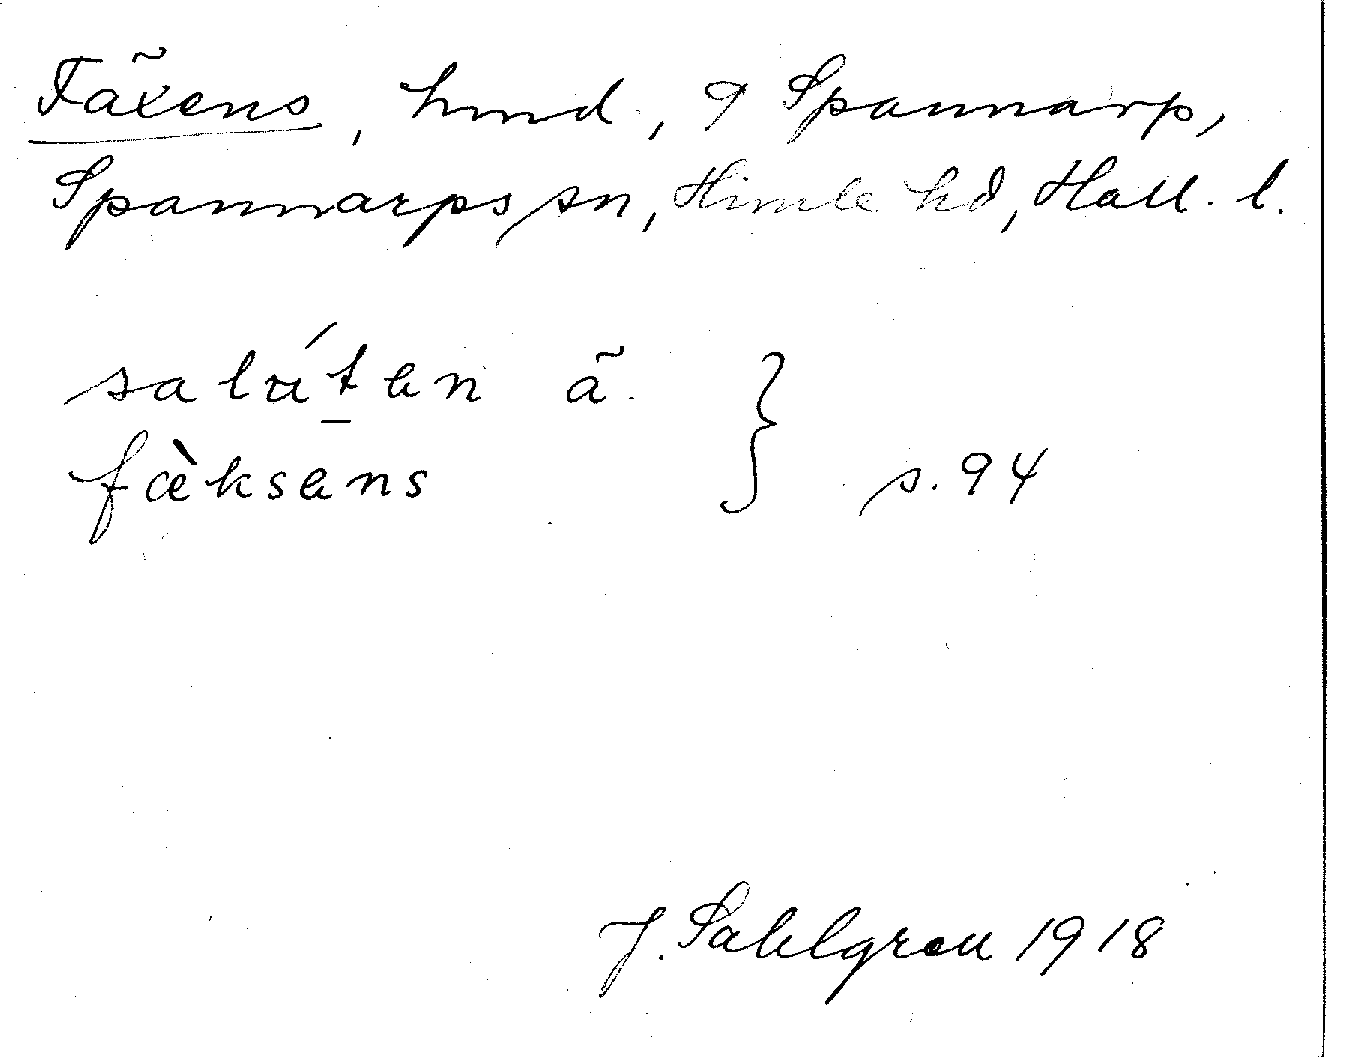 Fäxens, hmd, 9 Spannarp,
Spannarps sn, Himle hd, Hall. l.
salútən ã.
fæ̀ksəns } s. 94
J. Sahlgren 1918